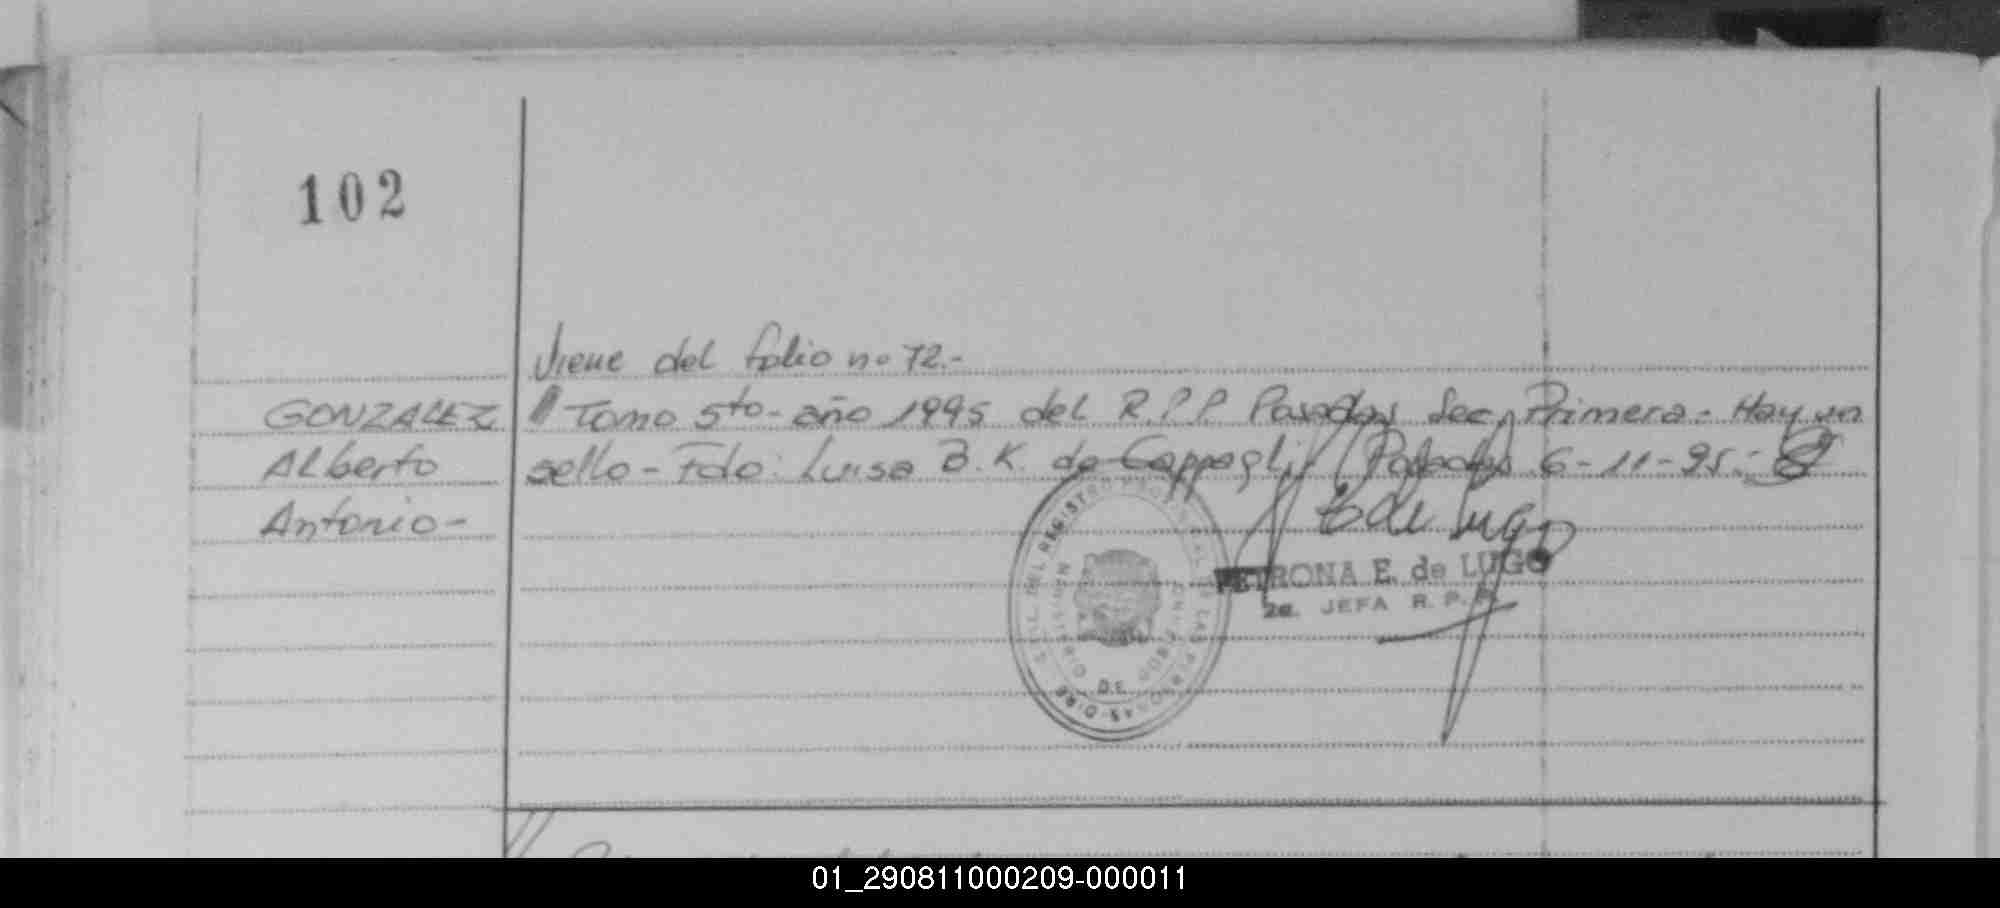 102
Viene del folio no 72.-
GONZALEZ // Tomo 5to- año 1995 del R.P.P Posadas Sec. Primera- Hay un
Alberto sello- Fdo: Luisa B. K. de Cappagli Posadas 6-11-95.-
Antonio-
E de Lugo
PETRONA E. de LUGO
2a. JEFA R. P. P.
DEL REGISTRO PROVINCIAL DE LAS PERSONAS
DE
01_290811000209-000011